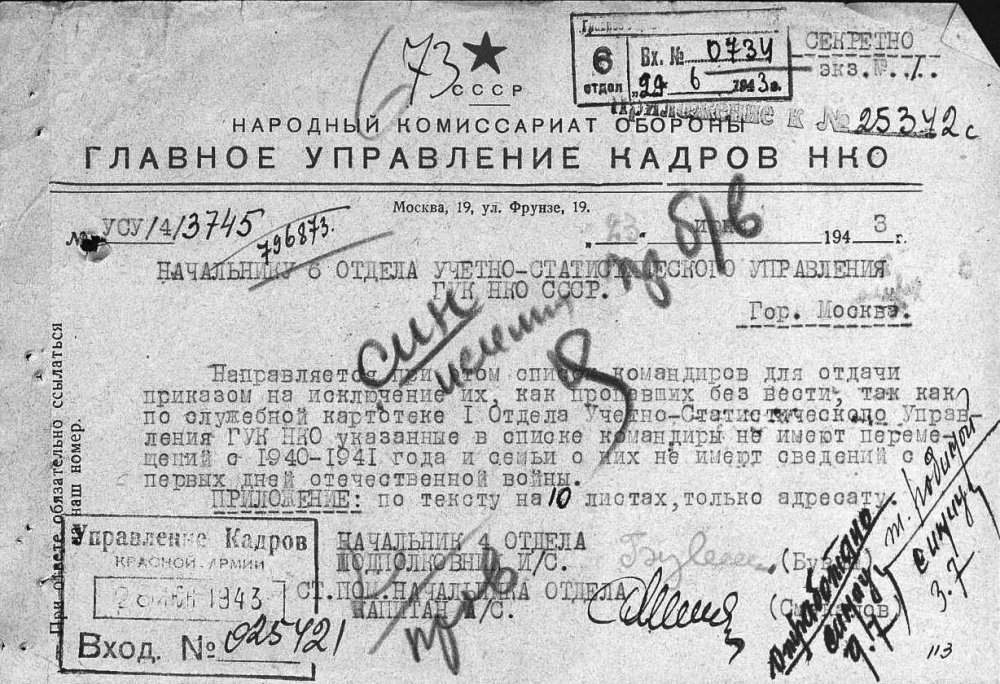 73
СССР
6
отдел
Вх. № 0734
"29" 6 1943г.
СЕКРЕТНО
экз. № 1.
Приложение к № 25342с
НАРОДНЫЙ КОМИССАРИАТ ОБОРОНЫ
ГЛАВНОЕ УПРАВЛЕНИЕ КАДРОВ НКО
Москва, 19, ул. Фрунзе, 19.
№ УСУ/4/3745
796873.
194 3 г.
пр б/в
НАЧАЛЬНИКУ 6 ОТДЕЛА УЧЕТНО-СТАТИСТИЧЕСКОГО УПРАВЛЕНИЯ
ГУК НКО СССР.
Гор. Москва.
При ответе обязательно ссылаться
на наш номер.
Направляется при этом список командиров для отдачи
приказом на исключение их, как пропавших без вести, так как
по служебной картотеке I Отдела Учетно-Статистического Управ-
ления ГУК НКО указанные в списке командиры не имеют переме-
щений с 1940-1941 года и семьи о них не имеют сведений с
первых дней отечественной войны.
ПРИЛОЖЕНИЕ: по тексту на 10 листах, только адресату.
НАЧАЛЬНИК 4 ОТДЕЛА
ПОДПОЛКОВНИК И/С.
СТ.ПОМ.НАЧАЛЬНИКА ОТДЕЛА
КАПИТАН И/С.
Управление Кадров
КРАСНОЙ АРМИИ
28 ИЮН 1943
Вход. № 025421
Отработано
9.7
3.7
113